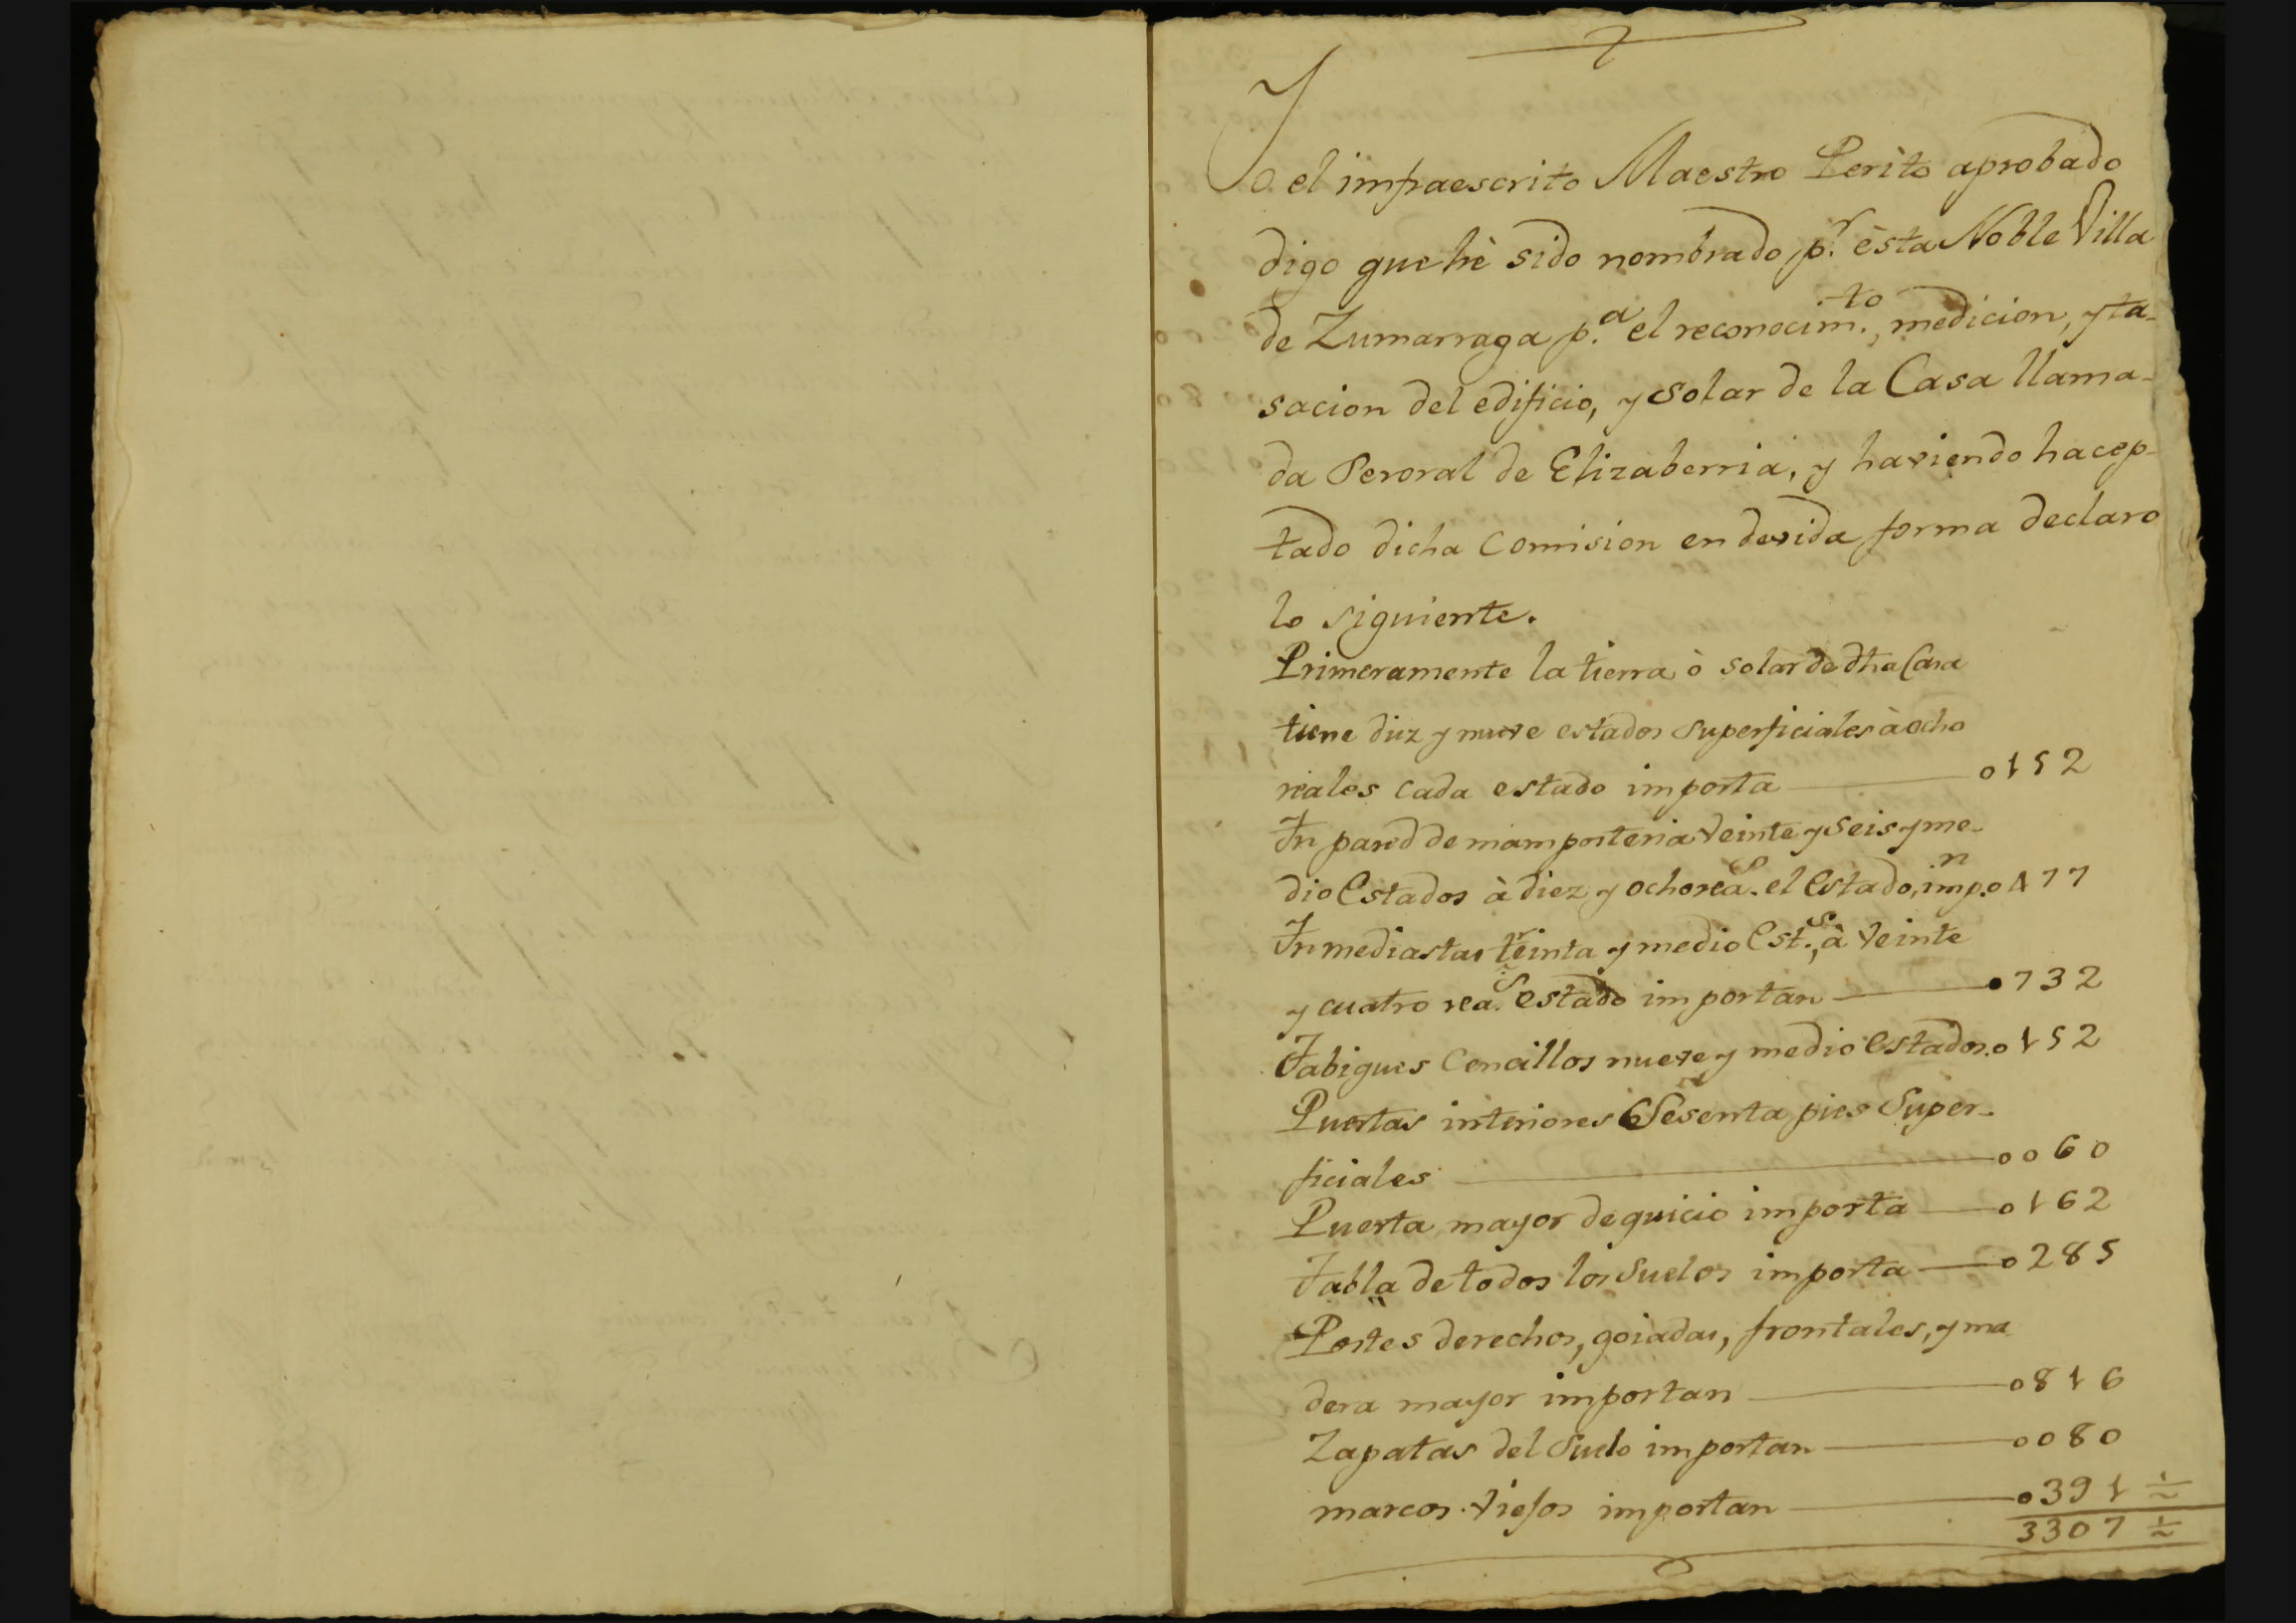 Yo el imfraescrito Maestro Perito aprobado
digo que hè sido nombrado, p.r èsta Noble Villa
de Zumarraga p.a el reconocim.to, medicion, y ta-
sacion del edificio, y Solar de la Casa llama-
da Peroral de Elizaberria, y haviendo hacep-
tado dicha Comision en devida forma declaro
lo siguiente.
Primeramente la tierra ò solar de dha Casa
tiene diez y nueve estados superficiales à ocho
reales cada estado importa 0152
Yn pared de mamposteria Veinte y Seis y me-
dio Estados à diez y ocho rea.s el Estado, imp.n 0477
Yn mediastas treinta y medio Est.s, à Veinte
y cuatro rea.s estado importan 0732
Tabiques Cencillos nueve y medio Estados. 0152
Puertas interiores 6 Sesenta pies Super-
ficiales 0060
Puerta mayor de quicio importa 0162
Tabla de todos los Suelos importa 0285
Postes derechos, goiadas, frontales, y ma
dera mayor importan 0816
Zapatas del Suelo importan 0080
marcos viejos importan 0391 ½
3307 ½